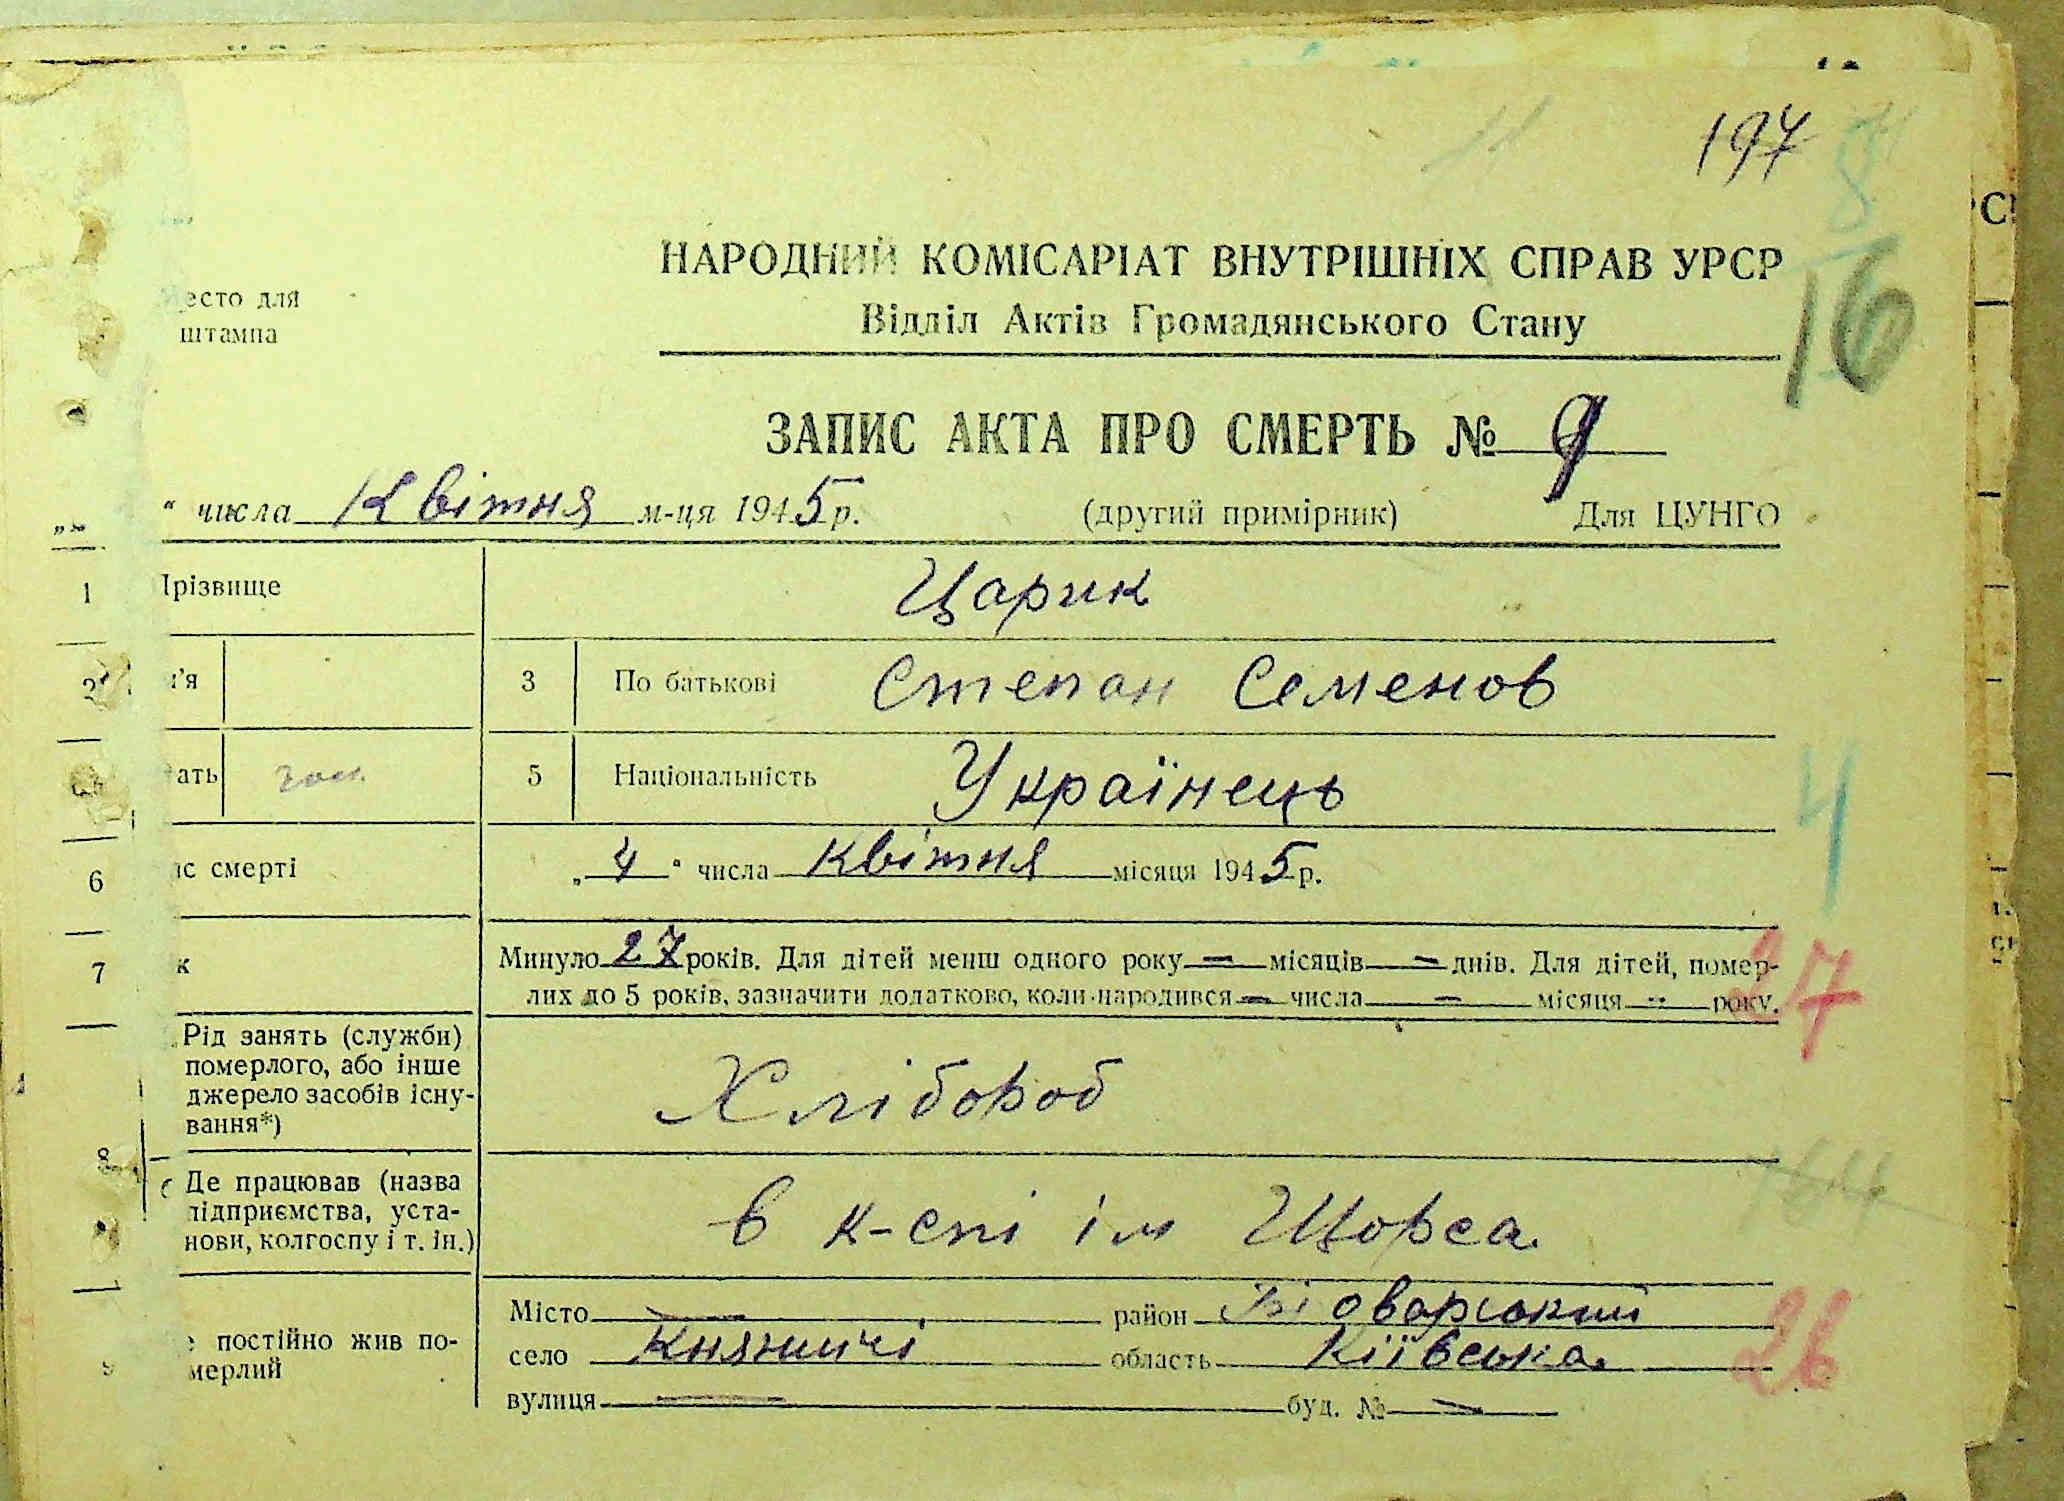 197
8
16
есто для
штампа
НАРОДНИЙ КОМІСАРІАТ ВНУТРІШНІХ СПРАВ УРСР
Відділ Актів Громадянського Стану
ЗАПИС АКТА ПРО СМЕРТЬ № 9
" числа Квітня м-ця 1945 р. (другий примірник) Для ЦУНГО
1 Прізвище Царик
2 'я 3 По батькові Степан Семенов
ать чол. 5 Національність Українець
4
6 ас смерті „4" числа Квітня місяця 1945 р.
7 к Минуло 27 років. Для дітей менш одного року — місяців — днів. Для дітей, помер-
лих до 5 років, зазначити додатково, коли народився — числа — місяця — року.
27
Рід занять (служби)
померлого, або інше
джерело засобів існу-
вання*)
Хлібороб
8
Де працював (назва
підприємства, уста-
нови, колгоспу і т. ін.)
в к-спі ім Щорса
Місто — район
село Княжичі область Київська
9 постійно жив по-
мерлий
26
вулиця — буд. № —